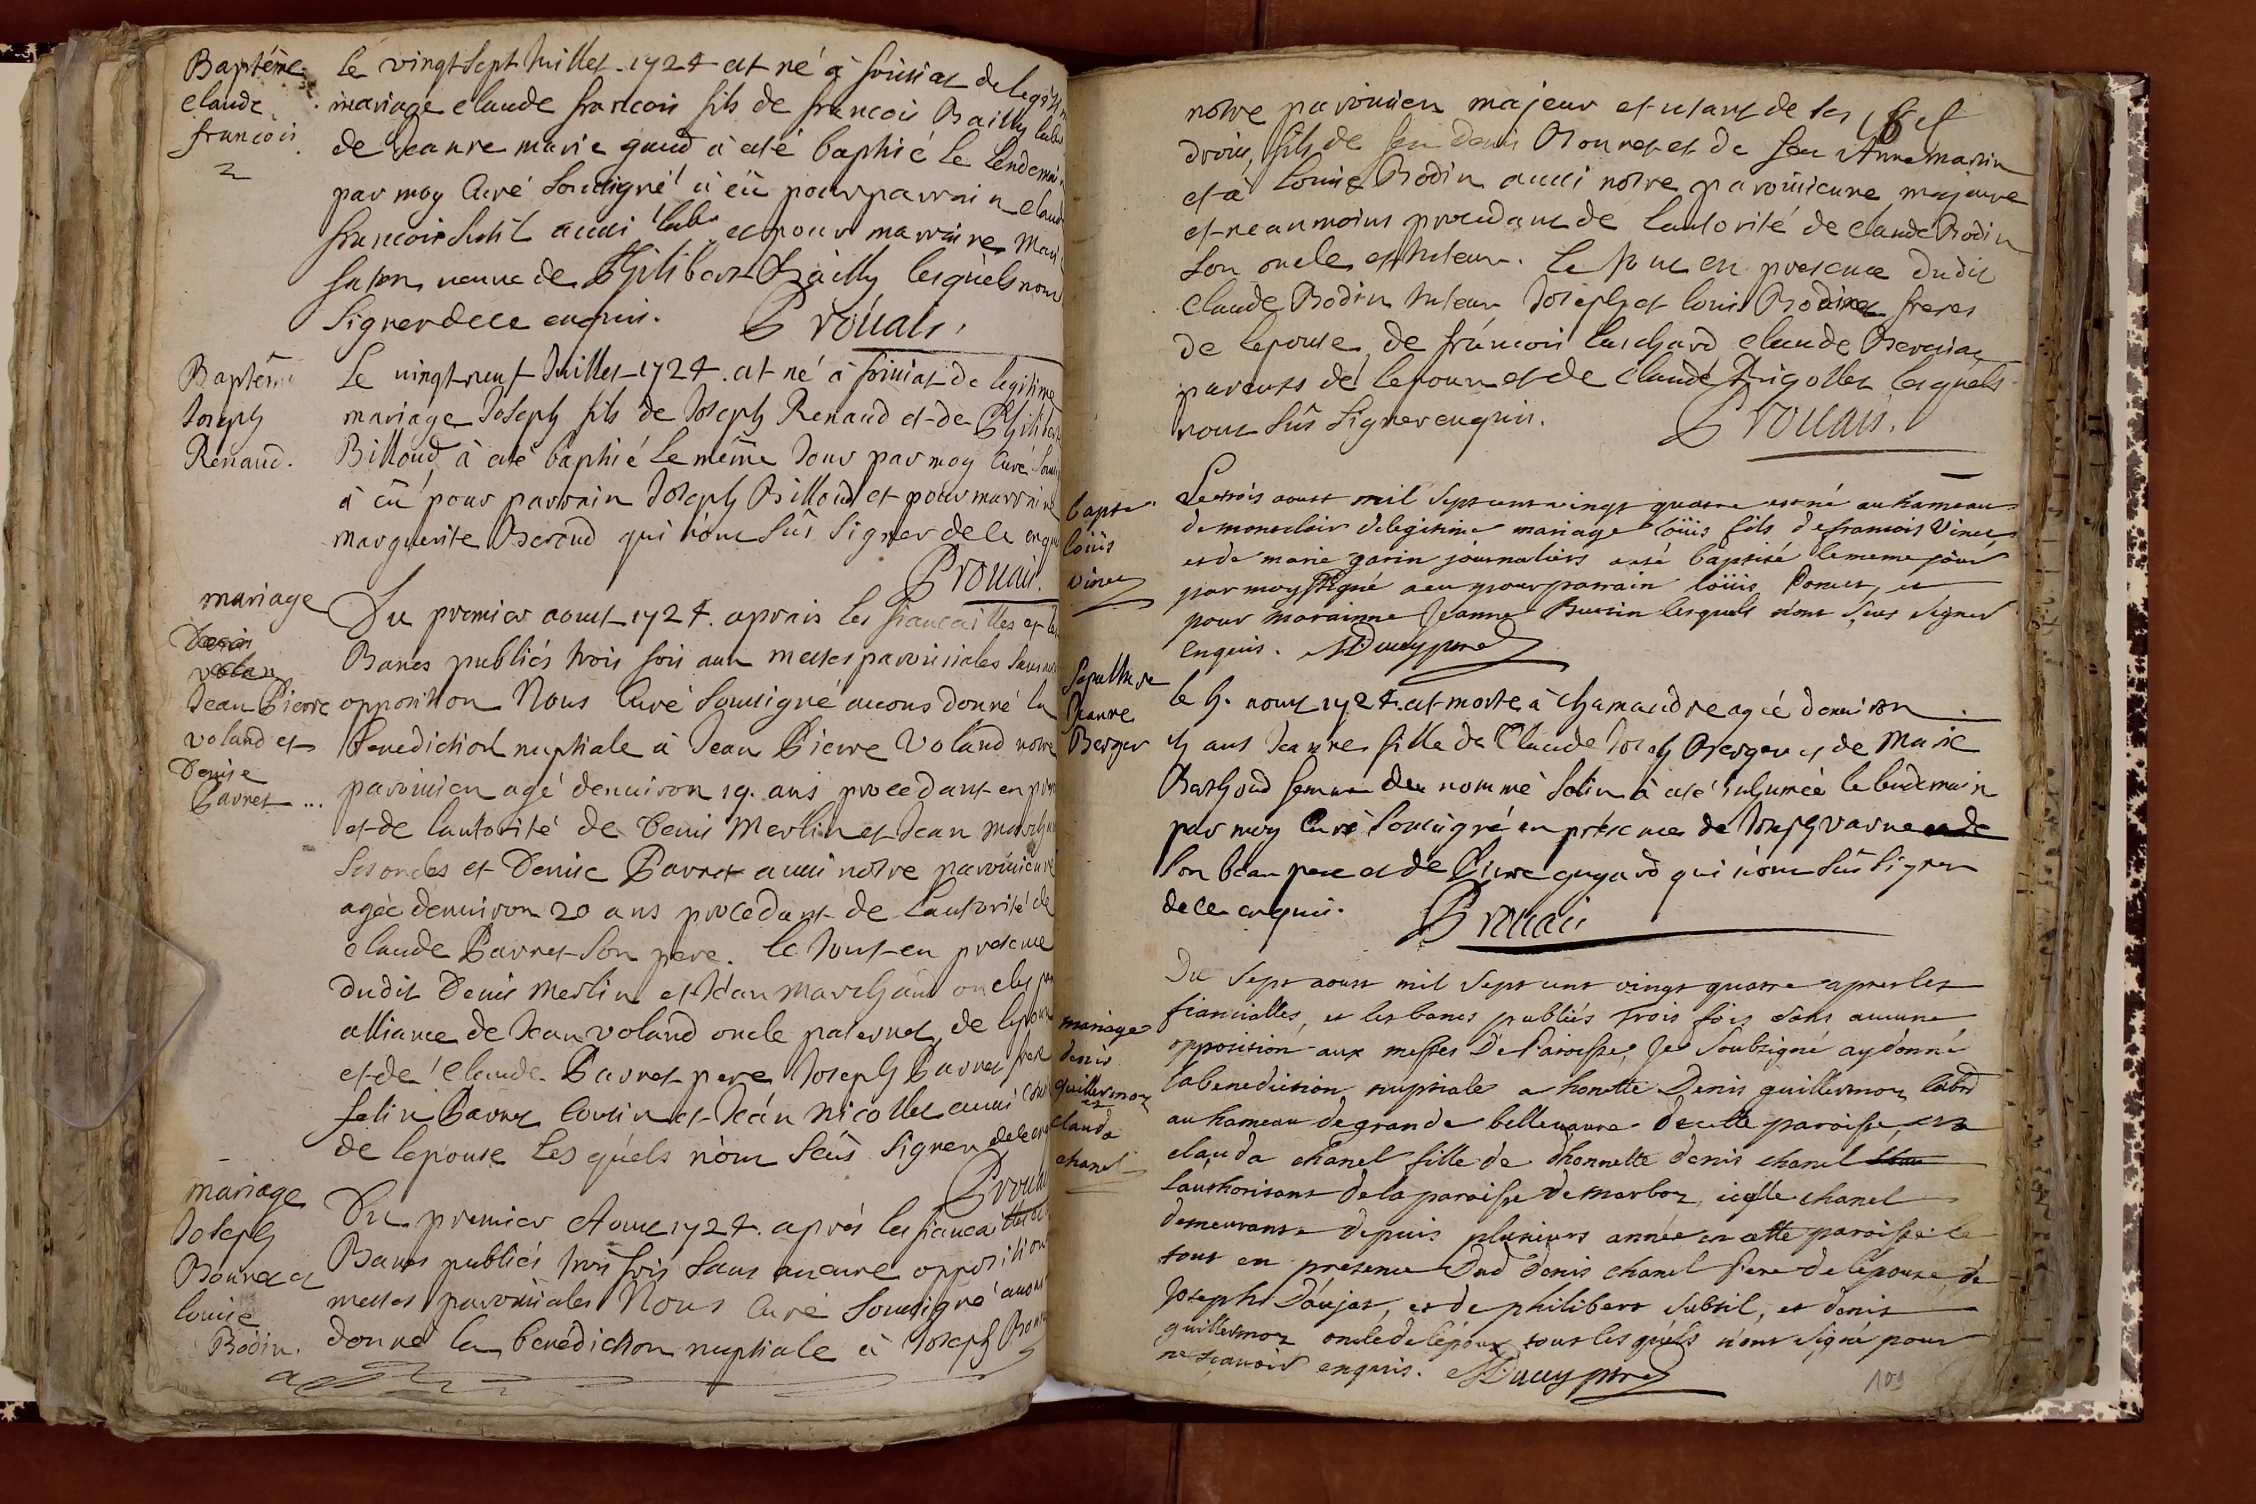 Baptéme
claude
francois
2
le vingt sept Juillet 1724 est né à foissiat de legiti
mariage claude francois fils de francois Bailly labo
de Jeanne marie gaud à eté baptisé le lendemai
par moy Curé soussigné à eü pour parrain claud
francois Subtil aussi labr et pour marraine Mari
veuve de Philibert Bailly lesquels nont
signer de ce enquis.
Prouais.
Baptême
Joseph
Renaud.
Le vingt neuf Juillet 1724. est né à foissiat de legitime
mariage Joseph fils de Joseph Renaud et de Philibert
Billoud à eté baptisé le même Jour par moy Curé Sous
à eü pour parrain Joseph Billoud et pour marraine
marguerite Beraud qui n'ont sûs signer de ce enq
Prouais.
mariage
Denis
volan
Jean Pierre
voland et
Denise
Pavret ...
Du premier aoust 1724. aprais les fiancailles et les
Bancs publiés trois fois aux messes paroissiales sans
opposition Nous Curé soussigné auons donné la
Benediction nuptiale à Jean Pierre Voland notre
paroissien agé denuiron 19. ans procedant en
et de lautorité de Denis Merlin et Jean Marchan
ses oncles et Denise Pavret aussi notre paroissienne
agée denuiron 20 ans procedant de lautorité de
claude Pavret son pere. le tout en presence
dudit Denis Merlin et Jean Marchand oncles par
alliance de Jean voland oncle paternel de lepoux
et de claude Pavret pere Joseph Pavret frere
felix Pavret cousin et Jean Nicollet aussi
de lepouse lesquels n'ont sçûs signer de ce enq
Prouai
mariage
Joseph
Bouret et
louise
Bodin.
Du premier Aoust 1724. aprés les fiancailles et
Bancs publiés trois fois sans aucune opposition
messes paroissiales Nous Curé soussigné auons
donné la benediction nuptiale à Joseph Bour
notre paroissien majeur et usant de ses
droits, fils de feu denis Bouret et de feu Anne martin
et à louise Bodin aussi notre paroissienne majeure
et neanmoins procedant de lautorité de claude Bodin
son oncle et tuteur. le tout en presence dudit
claude Bodin tuteur Joseph et louis Bodin freres
de lepouse, de francois laschard claude
parents de lepoux et de claude Rigollet lesquels
nont sûs signer enquis.
Prouais.
bapte
loüis
vinet
Le trois aoust mil sept cent vingt quatre est né au hameau
de montclair de legitime mariage loüis fils de francois Vinet
et de marie garin journaliers a été baptisé le meme jour
par moy soussigné a eu pour parrain loüis Poncet, et
pour marainne Jeanne Buisin lesquels n'ont sçus signer
enquis. Ducuy ptre
Sepulture
Jeanne
Berger
le 4. aoust 1724 est morte à chamandre agée denuiron
ans Jeanne fille de Claude Joseph Berger et de Marie
Bathoud femme du nommé Solin à eté inhumée le lendemain
par moy Curé soussigné en presence de Joseph varne
son beau pere et de Pierre guyard qui n'ont sûs signer
de ce enquis.
Prouais
mariage
denis
guillermoz
et
clauda
chanel
Du sept aoust mil sept cent vingt quatre apres les
fiancialles, et les bancs publiés trois fois sans aucune
opposition aux messes De Paroisse, Je soubsigné ay donné
la benediction nuptiale a honette Denis guillermoz labr
au hameau de grande bellevavre de cette paroisse, et a
clauda chanel fille de d'honnette denis chanel
l'authorisant de la paroisse de marboz, icelle chanel
demeurante depuis plusieurs année en cette paroisse le
tout en presence Dud denis chanel Pere de lepouse, de
Joseph Daujat, et de philibert subtil, et denis
guillermoz oncle de l'epoux tous lesquels n'ont signé pour
ne sçavoir enquis. Ducuy ptre
109